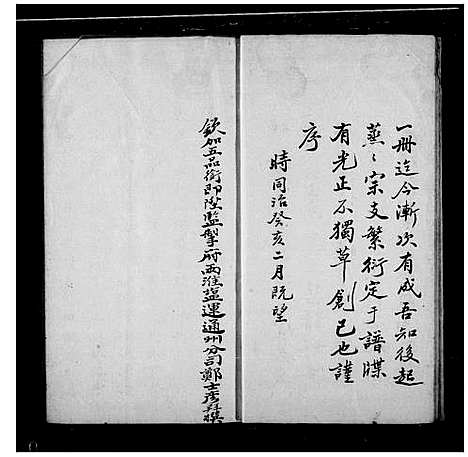 一冊迄今漸次有成吾知後起
蒸〻宗支繁衍定于譜牒
有光正不獨草創已也謹
序
時同治癸亥二月既望
欽加五品銜即陞監掣府兩淮鹽運通州分司鄭士彥拜撰